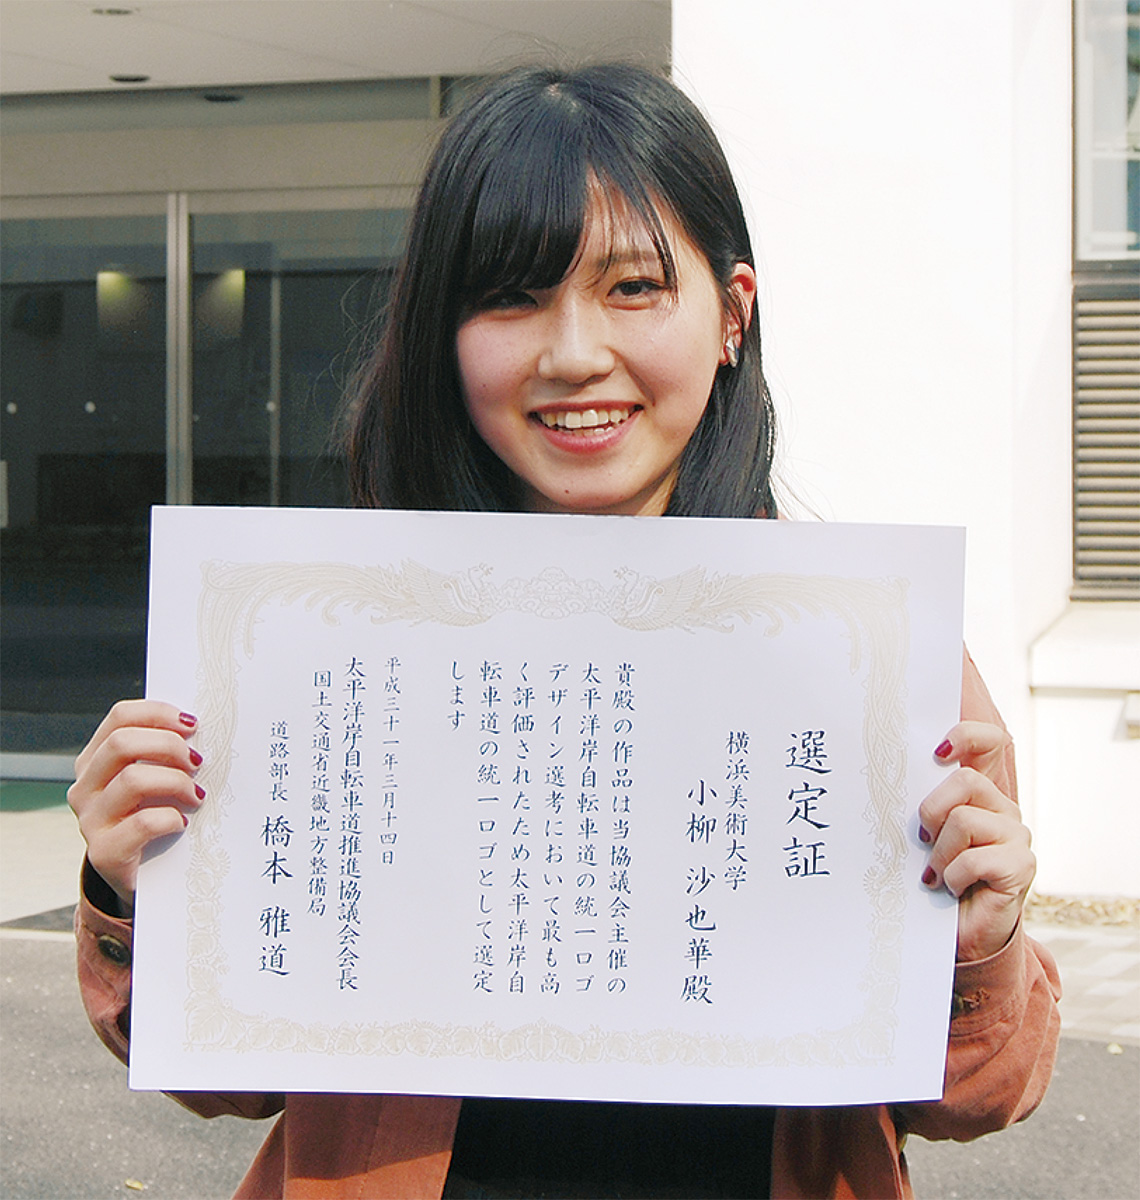 選定証
横浜美術大学
小柳 沙也華殿
貴殿の作品は当協議会主催の
太平洋岸自転車道の統一ロゴ
デザイン選考において最も高
く評価されたため太平洋岸自
転車道の統一ロゴとして選定
します
平成三十一年三月十四日
太平洋岸自転車道推進協議会会長
国土交通省近畿地方整備局
道路部長 橋本 雅道